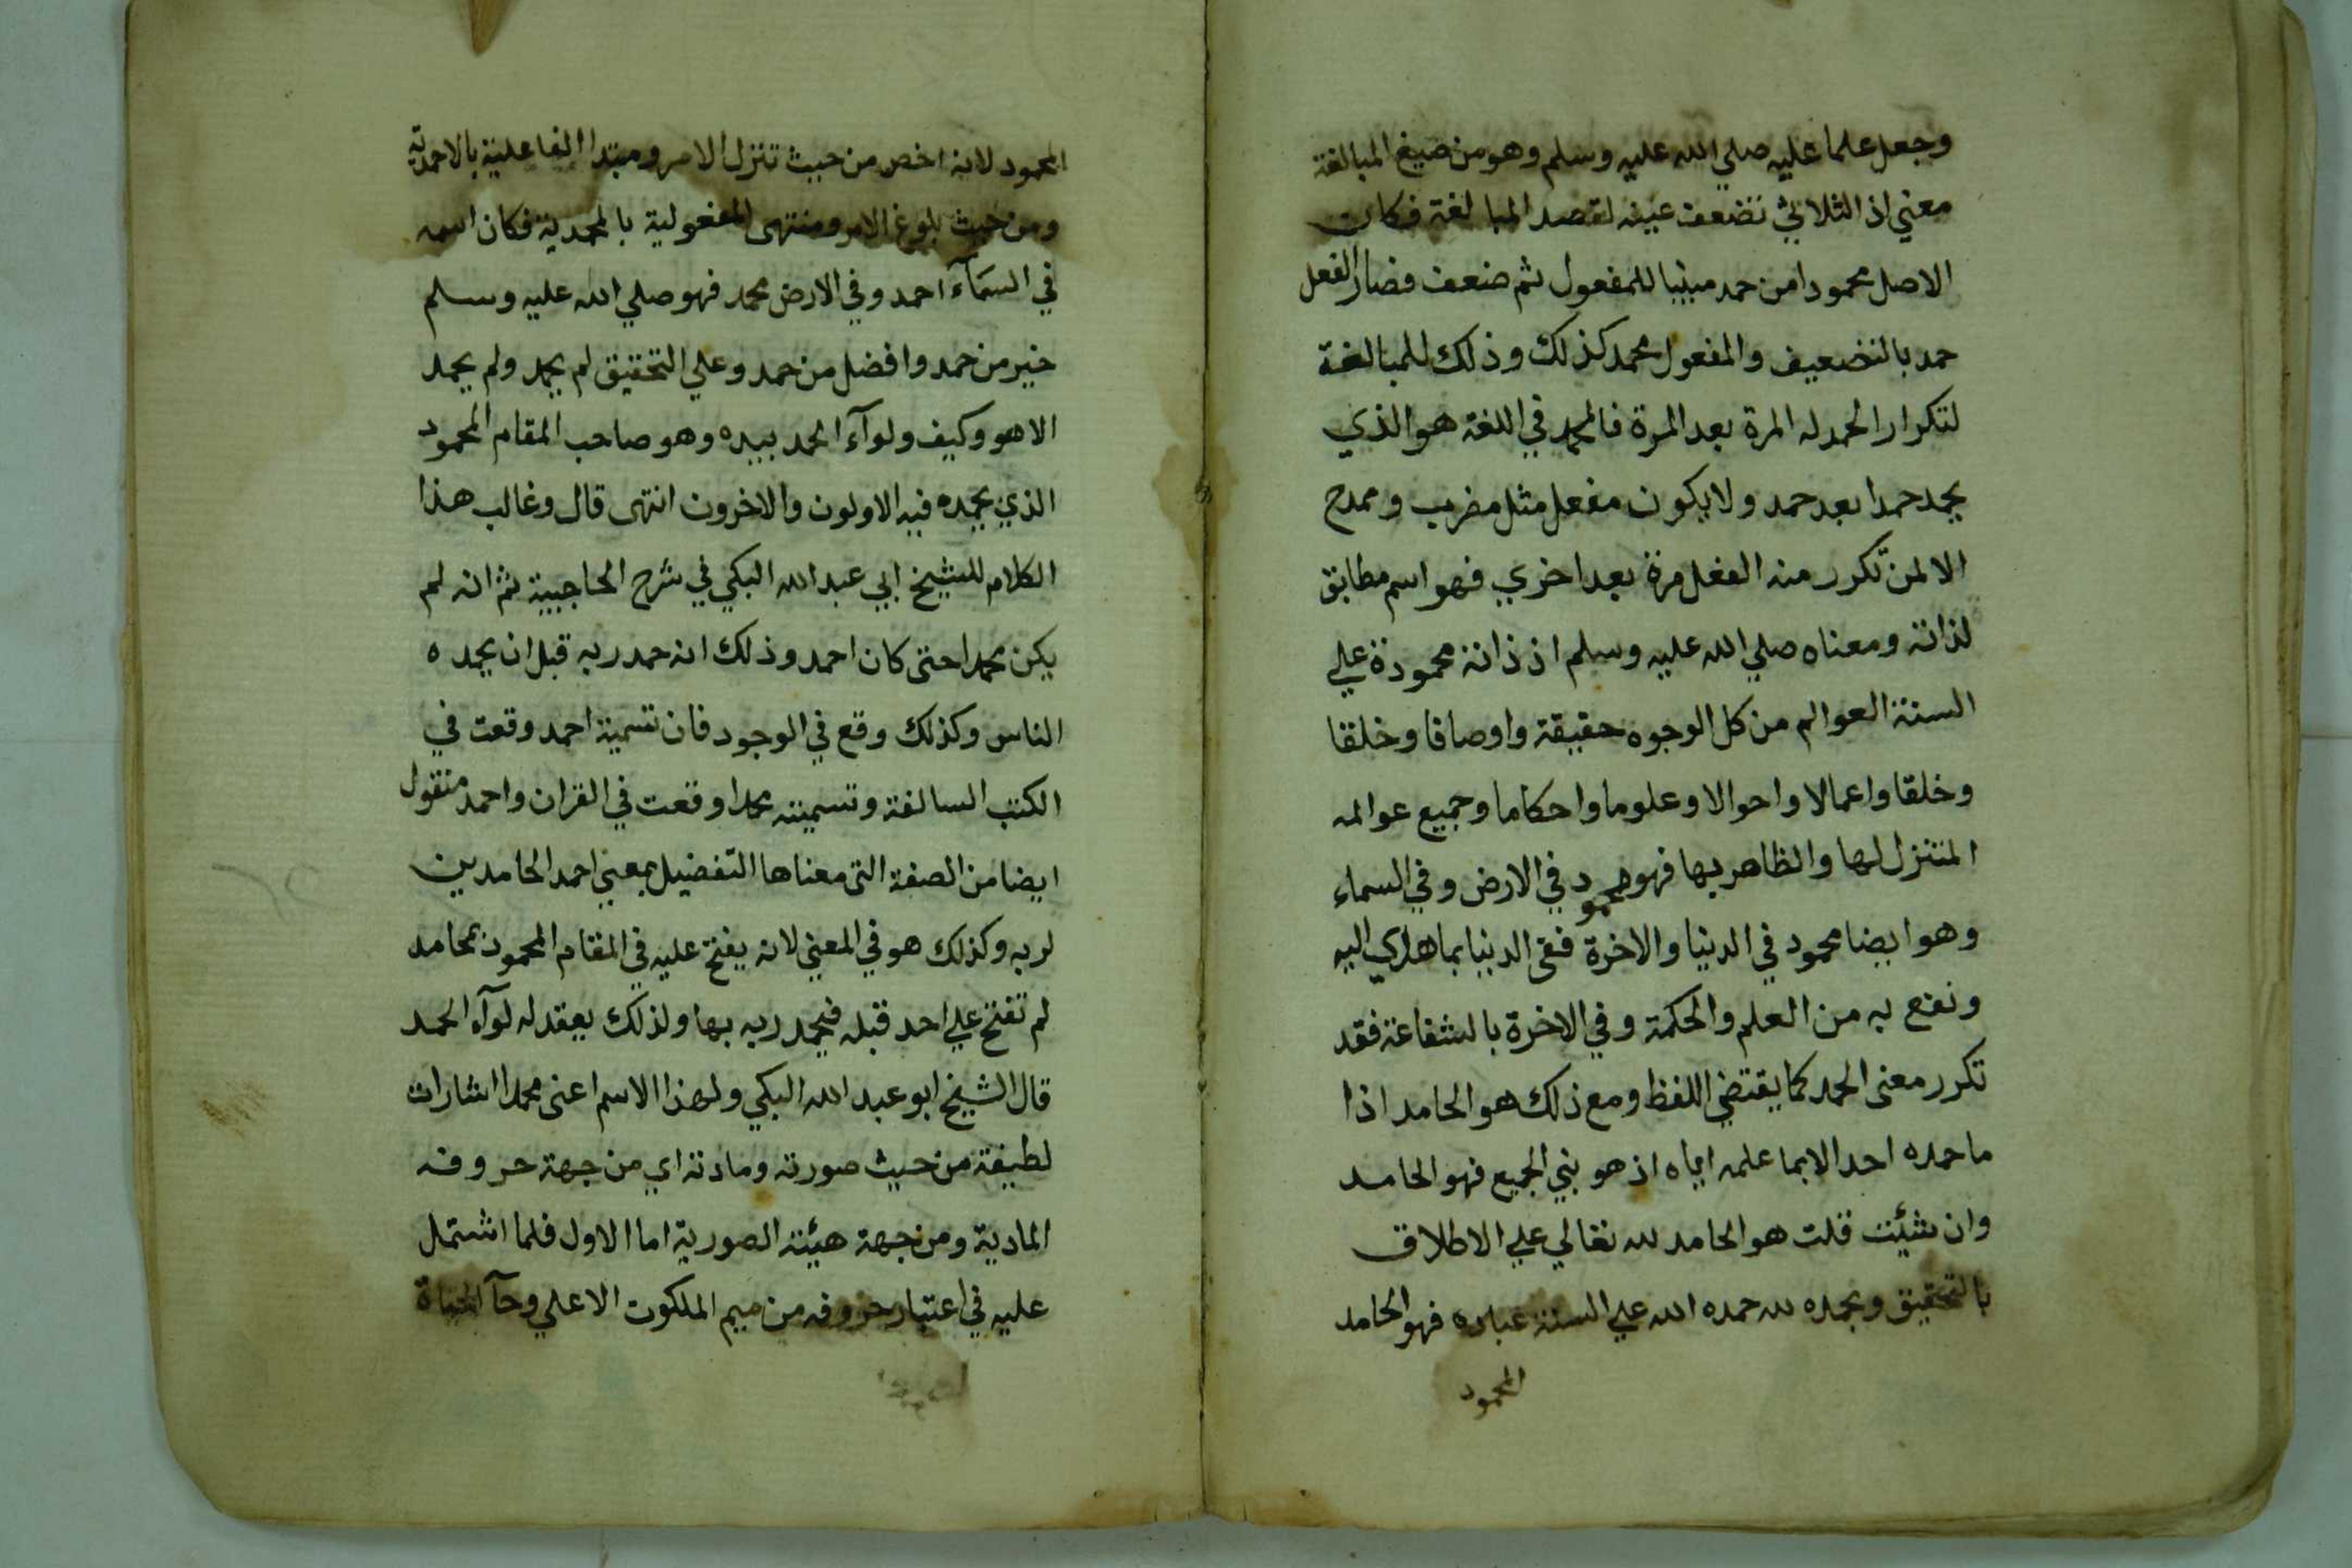 وجعل علما عليه صلي الله عليه وسلم وهو من صيغ المبالغة
معني اذ الثلاثي تضعف عينه لقصد المبالغة فكان
الاصل محمودا من حمد مبنيا للمفعول ثم ضعف فصار الفعل
حمد بالتضعيف والمفعول محمد كذلك وذلك للمبالغة
لتكرار الحمد له المرة بعد المرة فالمحمد في اللغة هو الذي
يحمد حمدا بعد حمد ولا يكون مفعل مثل مضرب وممدح
الا لمن تكرر منه الفعل مرة بعد اخري فهو اسم مطابق
لذاته ومعناه صلي الله عليه وسلم اذ ذاته محمودة علي
السنة العوالم من كل الوجوه حقيقة واوصافا وخلقا
وخلقا واعمالا واحوالا وعلوما واحكاما وجميع عوالمه
المتنزل لها والظاهر بها فهو محمود في الارض وفي السماء
وهو ايضا محمود في الدنيا والاخرة ففي الدنيا بما هدي اليه
ونفع به من العلم والحكمة وفي الاخرة بالشفاعة فقد
تكرر معنى الحمد كما يقتضي اللفظ ومع ذلك هو الحامد اذا
ما حمده احد الا بما علمه اياه اذ هو نبي الجميع فهو الحامد
وان شئت قلت هو الحامد لله تعالي علي الاطلاق
بالتحقيق وبحمده لله حمده الله علي السنة عباده فهو الحامد
المحمود
المحمود لانه اخص من حيث تنزل الامر ومبتدا الفاعلية بالاحمدية
ومن حيث بلوغ الامر ومنتهى المفعولية بالمحمدية فكان اسمه
في السمآء احمد وفي الارض محمد فهو صلي الله عليه وسلم
خير من حمد وافضل من حمد وعلي التحقيق لم يحمد ولم يحمد
الا هو وكيف ولوآء الحمد بيده وهو صاحب المقام المحمود
الذي يحمده فيه الاولون والاخرون انتهى قال وغالب هذا
الكلام للشيخ ابي عبد الله البكي في شرح الحاجبية ثم انه لم
يكن محمدا حتى كان احمد وذلك انه حمد ربه قبل ان يحمده
الناس وكذلك وقع في الوجود فان تسمية احمد وقعت في
الكتب السالفة وتسميته محمدا وقعت في القران واحمد منقول
ايضا من الصفة التي معناها التفضيل بمعني احمد الحامدين
لربه وكذلك هو في المعني لانه يفتح عليه في المقام المحمود بمحامد
لم تفتح علي احد قبله فيحمد ربه بها ولذلك يعقد له لوآء الحمد
قال الشيخ ابو عبد الله البكي ولهذا الاسم اعنى محمدا اشارات
لطيفة من حيث صورته ومادته اي من جهة حروفه
المادية ومن جهة هيئته الصورية اما الاول فلما اشتمل
عليه في اعتبار حروفه من ميم الملكوت الاعلي وحآ الحياة